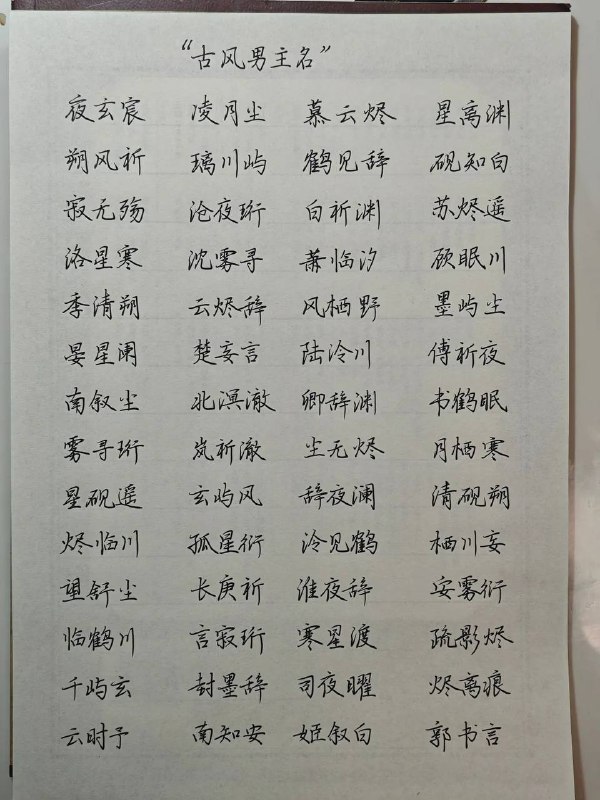 “古风男主名”
夜玄宸 凌月尘 慕云烬 星离渊
朔风祈 璃川屿 鹤见辞 砚知白
寂无殇 沧夜珩 白祈渊 苏烬遥
洛星寒 沈雾寻 萧临汐 顾眠川
季清朔 云烬辞 风栖野 墨屿尘
晏星阑 楚妄言 陆泠川 傅祈夜
南叙尘 北溟澈 卿辞渊 书鹤眠
雾寻珩 岚祈澈 尘无烬 月栖寒
星砚遥 玄屿风 辞夜澜 清砚朔
烬临川 孤星衍 泠见鹤 栖川妄
望舒尘 长庚祈 淮夜辞 安雾衍
临鹤川 言寂珩 寒星渡 疏影烬
千屿玄 封墨辞 司夜曜 烬离痕
云时予 南知安 姬叙白 郭书言